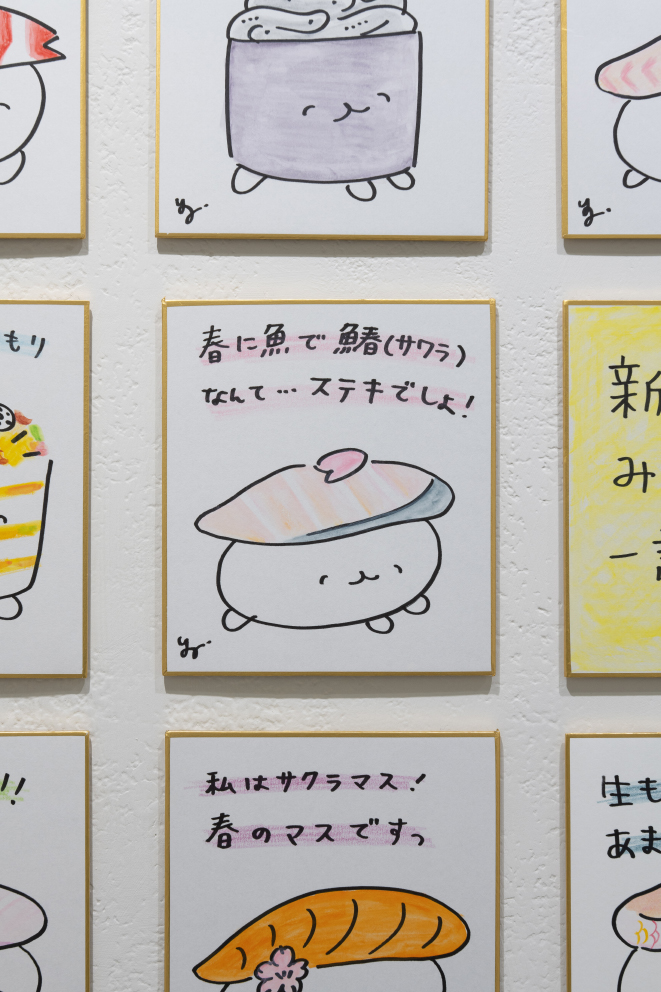 もり
春に魚で鰆(サワラ)
なんて…ステキでしょ!
新
み
一
!!
私はサクラマス!
春のマスですっ
生も
あま